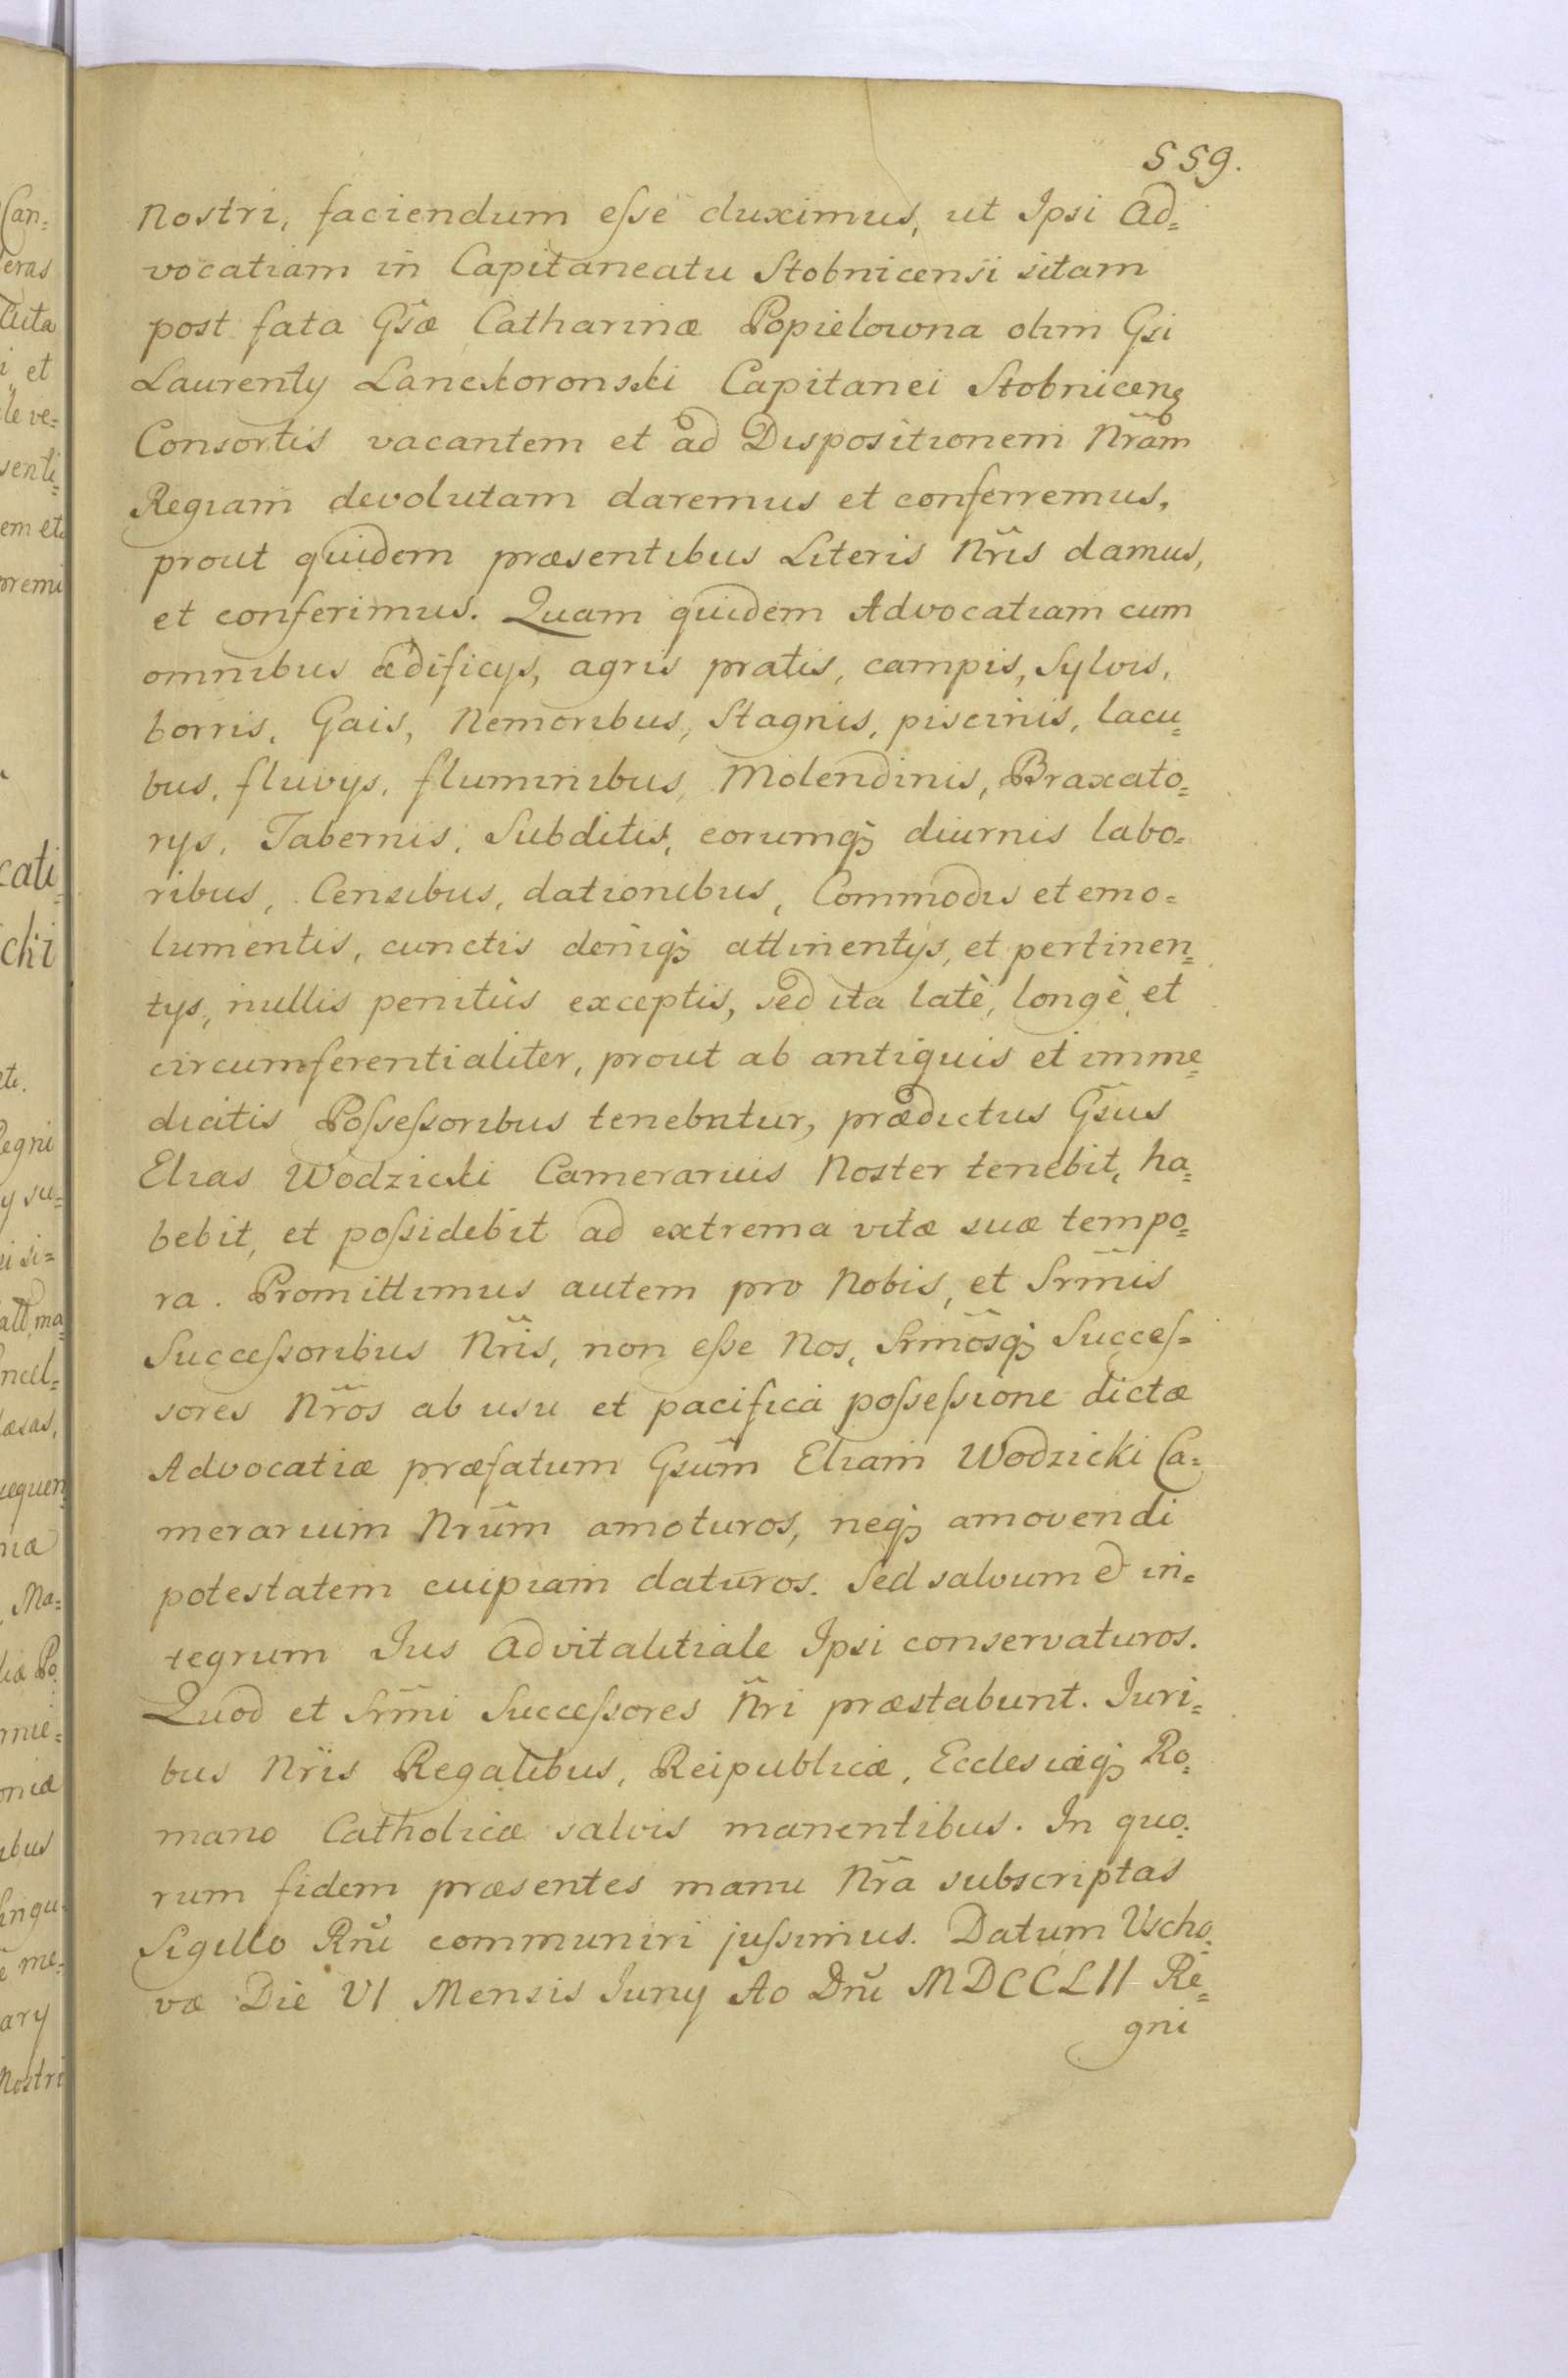 559.
Nostri, faciendum eſse duximus, ut Ipsi Ad=
vocatiam in Capitaneatu Stobnicensi sitam
post fata Gsæ Catharinæ Popielowna olim Gsi
Laurenty Lanckoronski Capitanei Stobnicens
Consortis vacantem et ad Dispositionem Nram
Regiam devolutam daremus et conferremus,
prout quidem præsentibus Literis Nris damus,
et conferimus. Quam quidem Advocatiam cum
omnibus ædificys, agris pratis, campis, Sylvis,
borris, Gais, Nemoribus, Stagnis, piscinis, lacu=
bus, fluvys, fluminibus, Molendinis, Braxato=
rys, Tabernis, Subditis, eorumq; diurnis labo=
ribus, Censibus, dationibus, Commodis et emo=
lumentis, cunctis deniq; attinentys, et pertinen=
tys, nullis penitùs exceptis, sed ita latè, longè, et
circumferentialiter, prout ab antiquis et imme=
diatis Poſseſsoribus tenebatur, prædictus Gsus
Elias Wodzicki Camerarius Noster tenebit, ha=
bebit, et poſsidebit ad extrema vitæ suæ tempo=
ra. Promittimus autem pro Nobis, et Srmis
Succeſsoribus Nris, non eſse Nos, Srmosq; Succeſ=
sores Nros ab usu et pacifica poſseſsione dictæ
Advocatiæ præfatum Gsum Eliam Wodzicki Ca=
merarium Nrum amoturos, neq; amovendi
potestatem cuipiam daturos. Sed salvum & in=
tegrum Jus Advitalitiale Ipsi conservaturos.
Quod et Srmi Succeſsores Nri præstabunt. Juri=
bus Nris Regalibus, Reipublicæ, Ecclesiæq; Ro=
mano Catholicæ salvis manentibus. In quo=
rum fidem præsentes manu Nra subscriptas
Sigillo Rni communiri juſsimus. Datum Vscho=
væ Die VI Mensis Juny Ao Dni MDCCLII Re=
gni